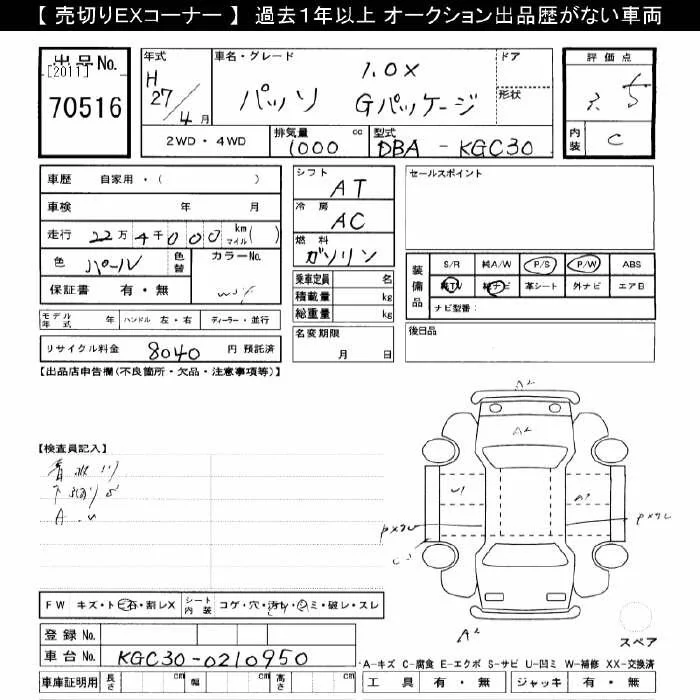 【 売切りEXコーナー 】 過去1年以上 オークション出品歴がない車両
出品No. [2011] 70516
年式 H 27/4月
車名・グレード 1.0X
パッソ Gパッケージ
ドア
形状
評価点 3.5
内装 C
2WD・4WD
排気量 1000 cc
型式 DBA - KGC30
車歴 自家用・( )
車検 年 月
走行 22万4千000 km マイル( )
色 パール 色替 カラーNo.
保証書 有・無
モデル年式 年 ハンドル 左・右 ディーラー・並行
リサイクル料金 8040 円 預託済
シフト AT
冷房 AC
燃料 ガソリン
乗車定員 名
積載量 kg
総重量 kg
名変期限 月 日
セールスポイント
装備品 S/R 純A/W P/S P/W ABS
純TV 純ナビ 革シート 外ナビ エアB
ナビ型番:
後日品
【出品店申告欄(不良箇所・欠品・注意事項等)】
【検査員記入】
A2
A2
U1
A1
PX2し
PX2し
A2
スペア
FW キズ・トビ石・割レX シート内装 コゲ・穴・汚レ・シミ・破レ・スレ
登録No.
車台No. KGC30-0210950
車庫証明用 長さ cm 幅 cm 高さ cm
A-キズ C-腐食 E-エクボ S-サビ U-凹ミ W-補修 XX-交換済
工具 有・無 ジャッキ 有・無